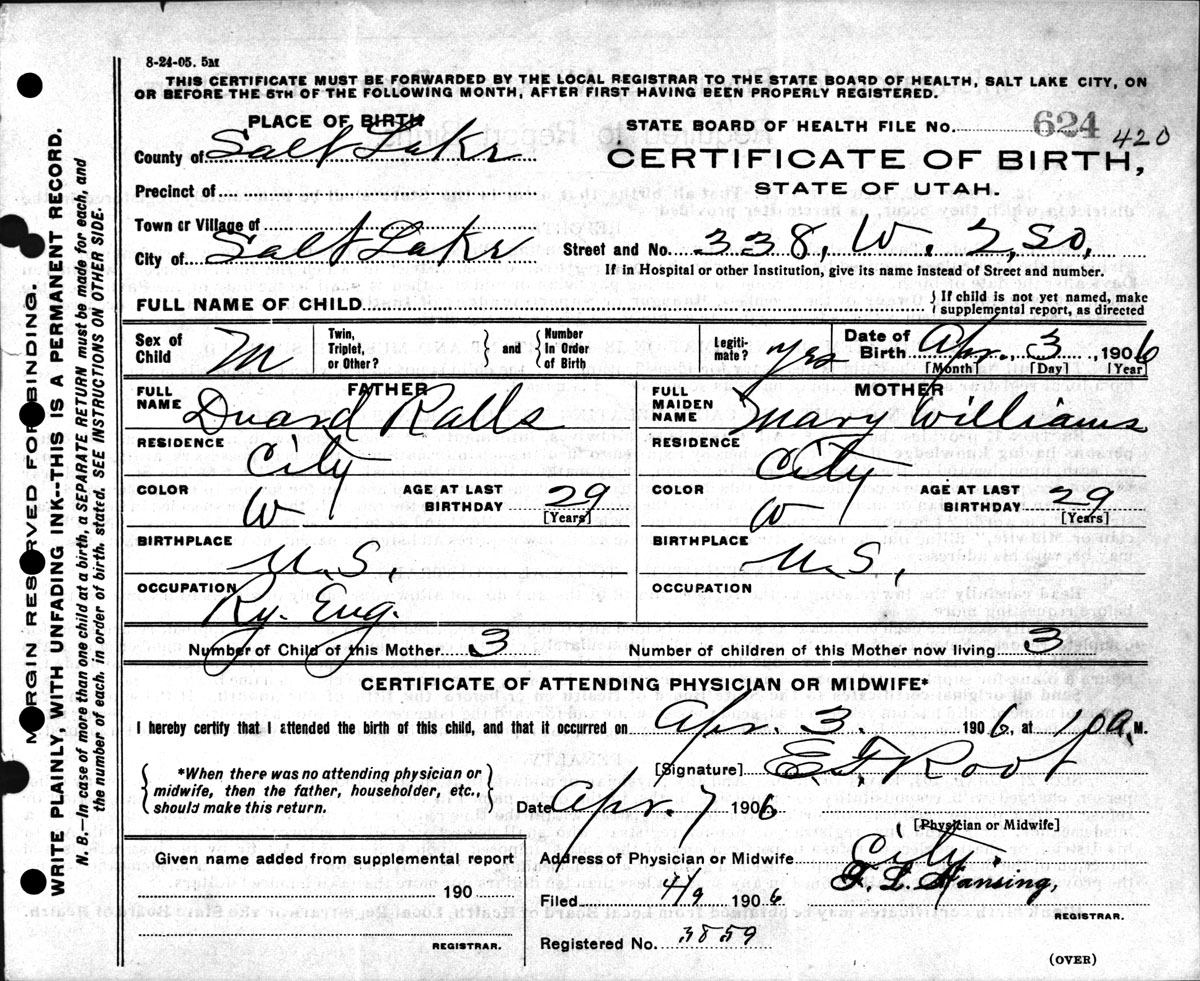 8-24-05. 5M
THIS CERTIFICATE MUST BE FORWARDED BY THE LOCAL REGISTRAR TO THE STATE BOARD OF HEALTH, SALT LAKE CITY, ON
OR BEFORE THE 5TH OF THE FOLLOWING MONTH, AFTER FIRST HAVING BEEN PROPERLY REGISTERED.
PLACE OF BIRTH
STATE BOARD OF HEALTH FILE No. 624 420
County of Salt Lake
CERTIFICATE OF BIRTH,
Precinct of
STATE OF UTAH.
Town or Village of
City of Salt Lake Street and No. 338, W. 2, So,
If in Hospital or other Institution, give its name instead of Street and number.
FULL NAME OF CHILD } If child is not yet named, make supplemental report, as directed
Sex of Child M Twin, Triplet, or Other? } and { Number In Order of Birth Legiti- mate? Yes Date of Birth Apr. 3 1906
[Month] [Day] [Year
FATHER MOTHER
FULL NAME Duard Ralls FULL MAIDEN NAME Mary Williams
RESIDENCE City RESIDENCE City
COLOR W AGE AT LAST BIRTHDAY 29 [Years] COLOR W AGE AT LAST BIRTHDAY 29 [Years]
BIRTHPLACE U.S, BIRTHPLACE U.S,
OCCUPATION Ry. Eng. OCCUPATION
Number of Child of this Mother 3 Number of children of this Mother now living 3
CERTIFICATE OF ATTENDING PHYSICIAN OR MIDWIFE*
I hereby certify that I attended the birth of this child, and that it occurred on Apr. 3. 1906, at 10 a. M.
{ *When there was no attending physician or midwife, then the father, householder, etc., should make this return. }
[Signature] E. F. Root
Date Apr 7 1906
[Physician or Midwife]
Given name added from supplemental report
Address of Physician or Midwife City.
190
Filed 4/9 1906
F. L. Hansing,
REGISTRAR.
REGISTRAR.
Registered No. 3859
(OVER)
MARGIN RESERVED FOR BINDING.
WRITE PLAINLY, WITH UNFADING INK--THIS IS A PERMANENT RECORD.
N. B.—In case of more than one child at a birth, a SEPARATE RETURN must be made for each, and
the number of each, in order of birth, stated. SEE INSTRUCTIONS ON OTHER SIDE.